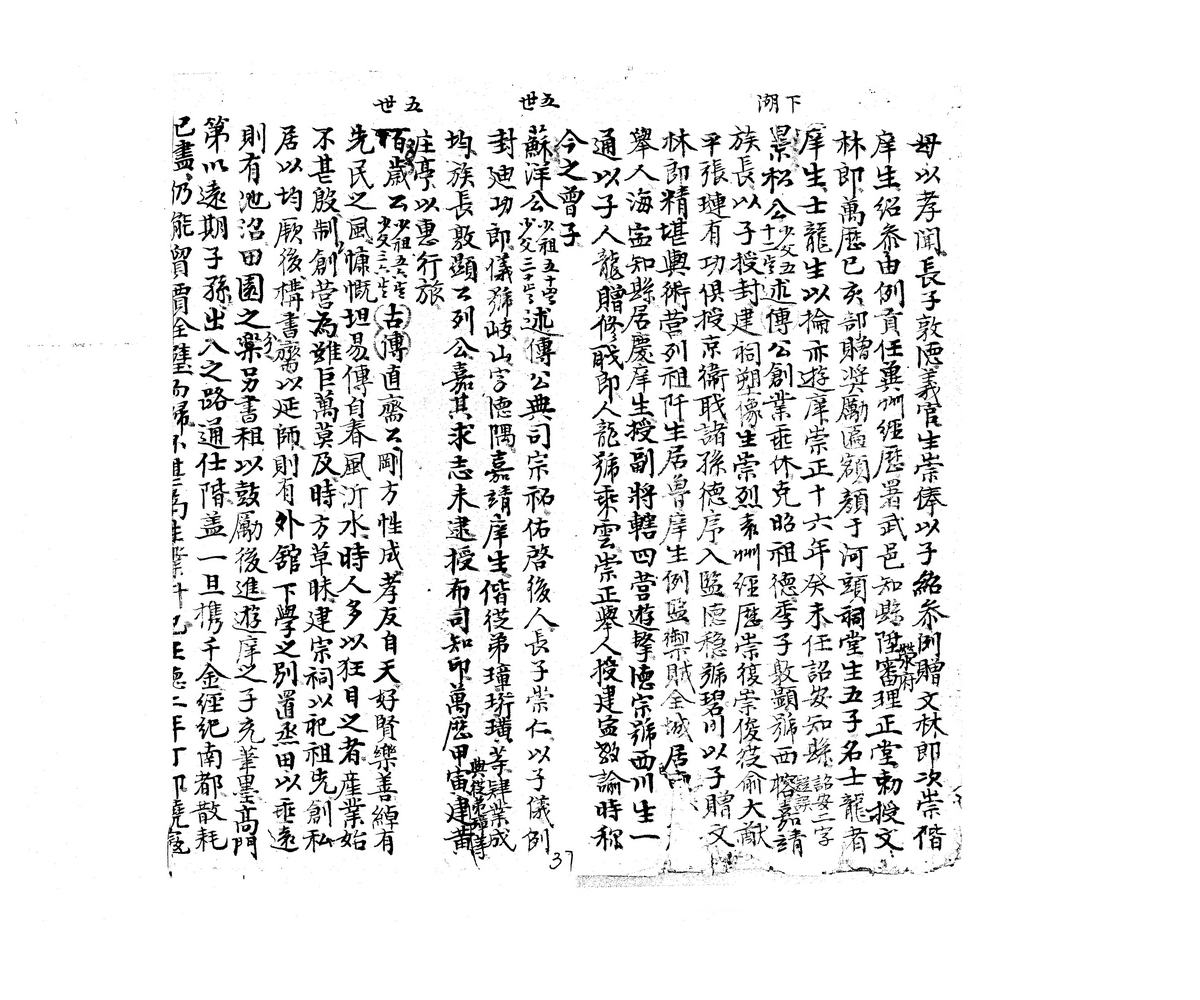 下湖
五世
五世
母以孝聞長子敦德義官生崇俸以子紹參例贈文林郎次崇偕
庠生紹參由例貢任冀州經歷署武邑知縣陞審理正堂勅授文
榮府
林郎萬曆己亥部贈奬勵匾額顏于河頭祠堂生五子名士龍者
庠生士龍生以掄亦遊庠崇正十六年癸未任詔安知縣詔安二字
景松公述傳公創業垂休克昭祖德季子敦顯號西榕嘉靖
族長以子授封建祠塑像生崇烈泰州經歷崇復崇俊從俞大猷
平張璉有功俱授京衛職諸孫德序入監德穩號碧川以子贈文
林郎精堪輿術營列祖阡生居魯庠生例監禦賊全城居
舉人海寧知縣居慶庠生授副將轄四營遊擊德宗號西川生一
通以子人龍贈修職郎人龍號乘雲崇正舉人授建寧教諭時稱
今之曾子
蘇洋公少祖五十四世少父三十世述傳公典司宗祏佑啓後人長子崇仁以子儀例
封廸功郎儀號岐山字德隅嘉靖庠生偕從弟璋珩璜等肄業成
均族長敦顯公列公嘉其求志未逮授布司知印萬歷甲寅建黃
與從弟璋等
庄亭以惠行旅
栢歲公古傳直齋公剛方性成孝友自天好賢樂善綽有
先民之風慷慨坦易傳自春風沂水時人多以狂目之者產業始
不甚殷制創營為難巨萬莫及時方草昧建宗祠以祀祖先創私
居以均厥後構書齋以延師則有外舘下學之別置烝田以垂遠
則有池沼田園之樂另書租以鼓勵後進遊庠之子充筆墨高門
第以遠期子孫出入之路通仕階蓋一旦携千金經紀南都散耗
已盡仍能
37